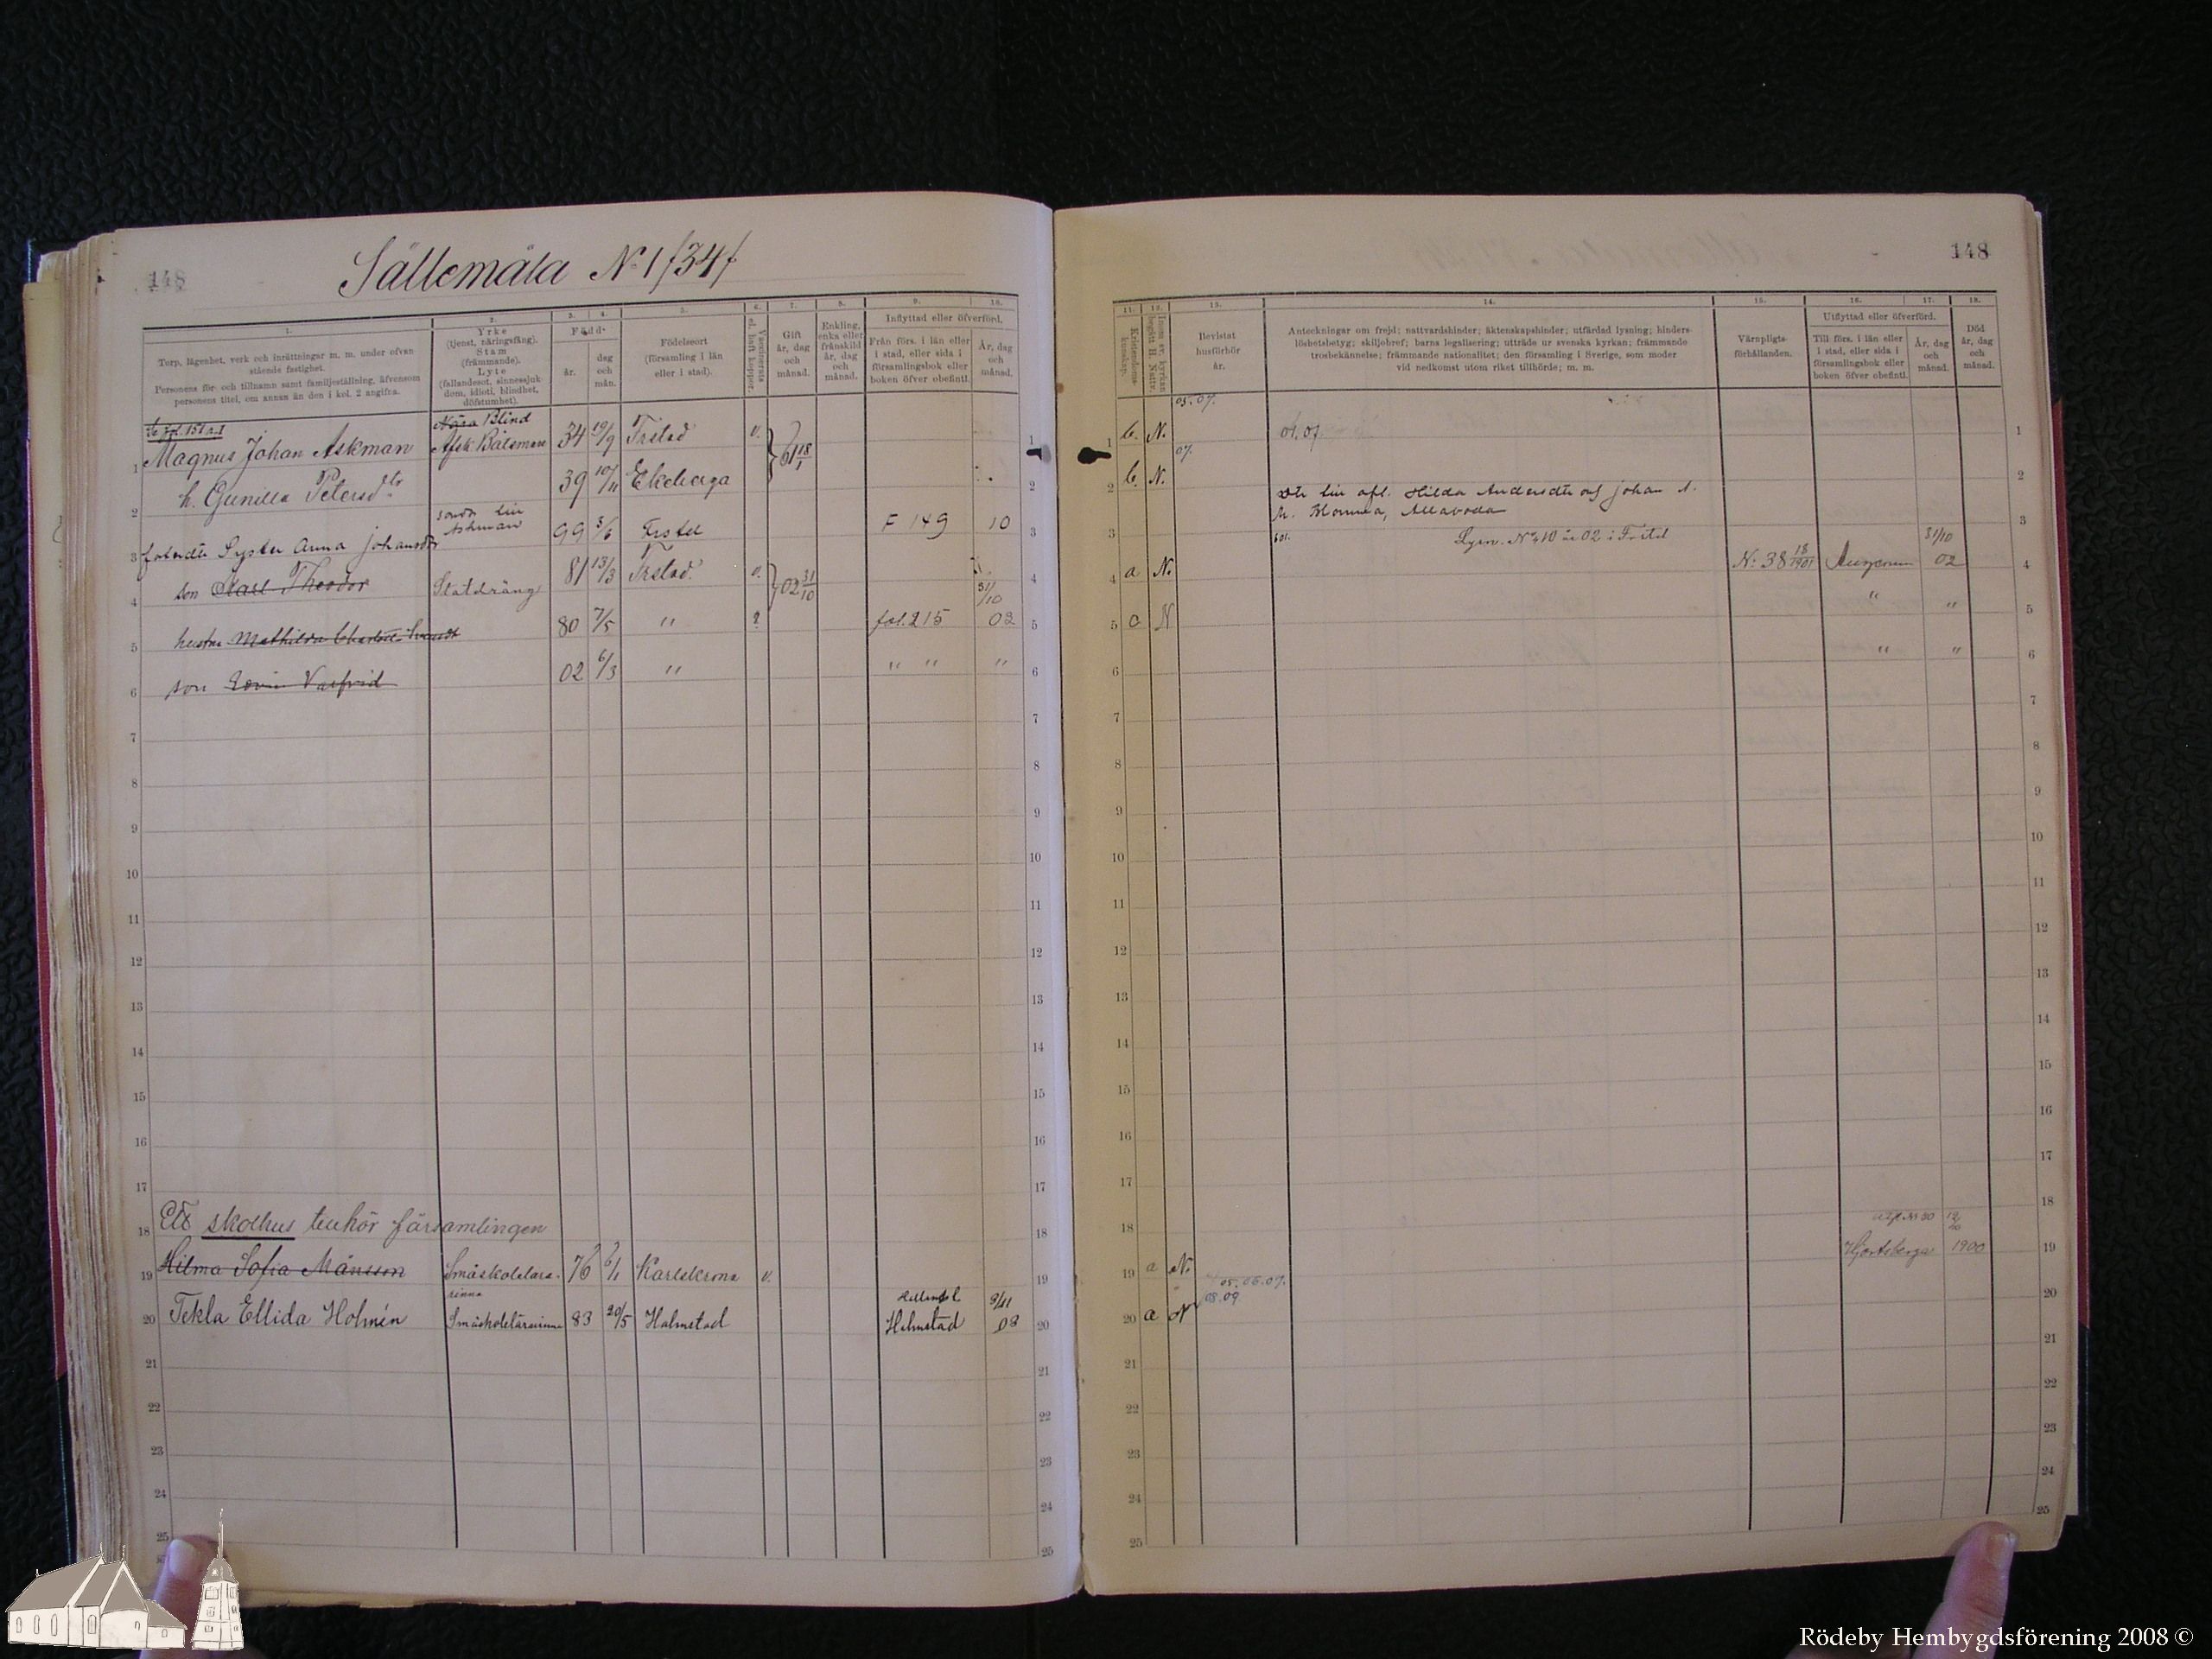 148
Sällemåla N:1 /34/
1. 2. 3. 4. 5. 6. 7. 8. 9. 10.
Torp, lägenhet, verk och inrättningar m. m. under ofvan-
stående fastighet.
Personens för- och tillnamn samt familjeställning, äfvensom
personens titel, om annan än den i kol. 2 angifna.
Yrke
(tjenst, näringsfång).
Stam
(främmande).
Lyte
(fallandesot, sinnessjuk-
dom, idioti, blindhet,
döfstumhet).
Född
år.
dag
och
mån.
Födelseort
(församling i län
eller i stad).
Vaccinerats
el. haft koppor.
Gift
år, dag
och
månad.
Enkling,
enka eller
frånskild
år, dag
och
månad.
Inflyttad eller öfverförd.
Från förs. i län eller
i stad, eller sida i
församlingsbok eller
boken öfver obefintl.
År, dag
och
månad.
Nära Blind
Magnus Johan Askman Afsk Båtsman 34 19/9 Fristad v. 61 18/1
h. Gunilla Petersdtr 39 10/11
sonen
Askman
Anna Johansdtr 99 5/6 Fristad F 149 10
son Karl Theodor Statdräng 81 13/3 Fristad v. 02 31/10
31/10
hustru Mathilda 80 7/5 " fol. 215 02
son Valfrid 02 6/3 " " " "
Ett skolhus tillhör församlingen
Hilma Sofia Månsson Småskolelära- 76 6/1 Karlskrona v.
rinna
Tekla Ellida Holmén Småskolelärarinna 83 20/5 Halmstad Halmstad 08
148
11. 12. 13. 14. 15. 16. 17. 18.
Kristendoms-
kunskap.
Bevistat
husförhör
år.
Anteckningar om frejd; nattvardshinder; äktenskapshinder; utfärdad lysning; hinders-
löshetsbetyg; skiljobref; barns legalisering; utträde ur svenska kyrkan; främmande
trosbekännelse; främmande nationalitet; den församling i Sverige, som moder
vid nedkomst utom riket tillhörde; m. m.
Värnpligts-
förhållanden.
Utflyttad eller öfverförd.
Till förs. i län eller
i stad, eller sida i
församlingsbok eller
boken öfver obefintl.
År, dag
och
månad.
Död
år, dag
och
månad.
05. 07.
b. N. 01. 07
07.
b. N.
Hilda Andersdtr och Johan
Lysn. N:o 10 år 02 i Fristad 31/10
a N. N: 38 18/1901 Augerum 02
c N " "
" "
a N. Hjortsberga 1900
05. 06. 07.
08. 09
a N
Rödeby Hembygdsförening 2008 ©